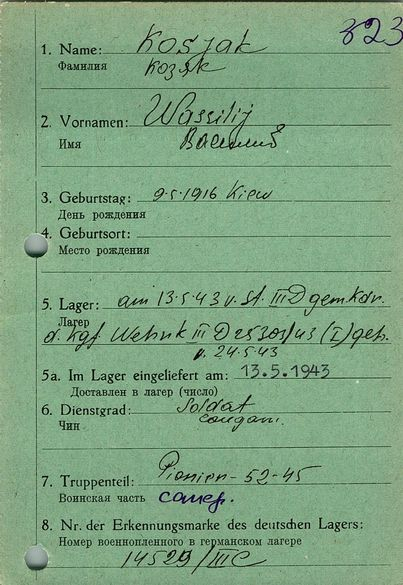 323
1. Name: Kosjak
Фамилия Козяк
2. Vornamen: Wassilij
Имя Василий
3. Geburtstag: 9.5.1916 Kiew
День рождения
4. Geburtsort:
Место рождения
5. Lager: am 13.5.43 v. St. III D gem. Kdr.
Лагер
d. Kgf. Wehrkr. III D 25303/43 (I) geh.
v. 24.5.43
5a. Im Lager eingeliefert am: 13.5.1943
Доставлен в лагер (число)
6. Dienstgrad: Soldat
Чин солдат
7. Truppenteil: Pionier-52-45
Воинская часть сапер.
8. Nr. der Erkennungsmarke des deutschen Lagers:
Номер военнопленного в германском лагере
14529/III C